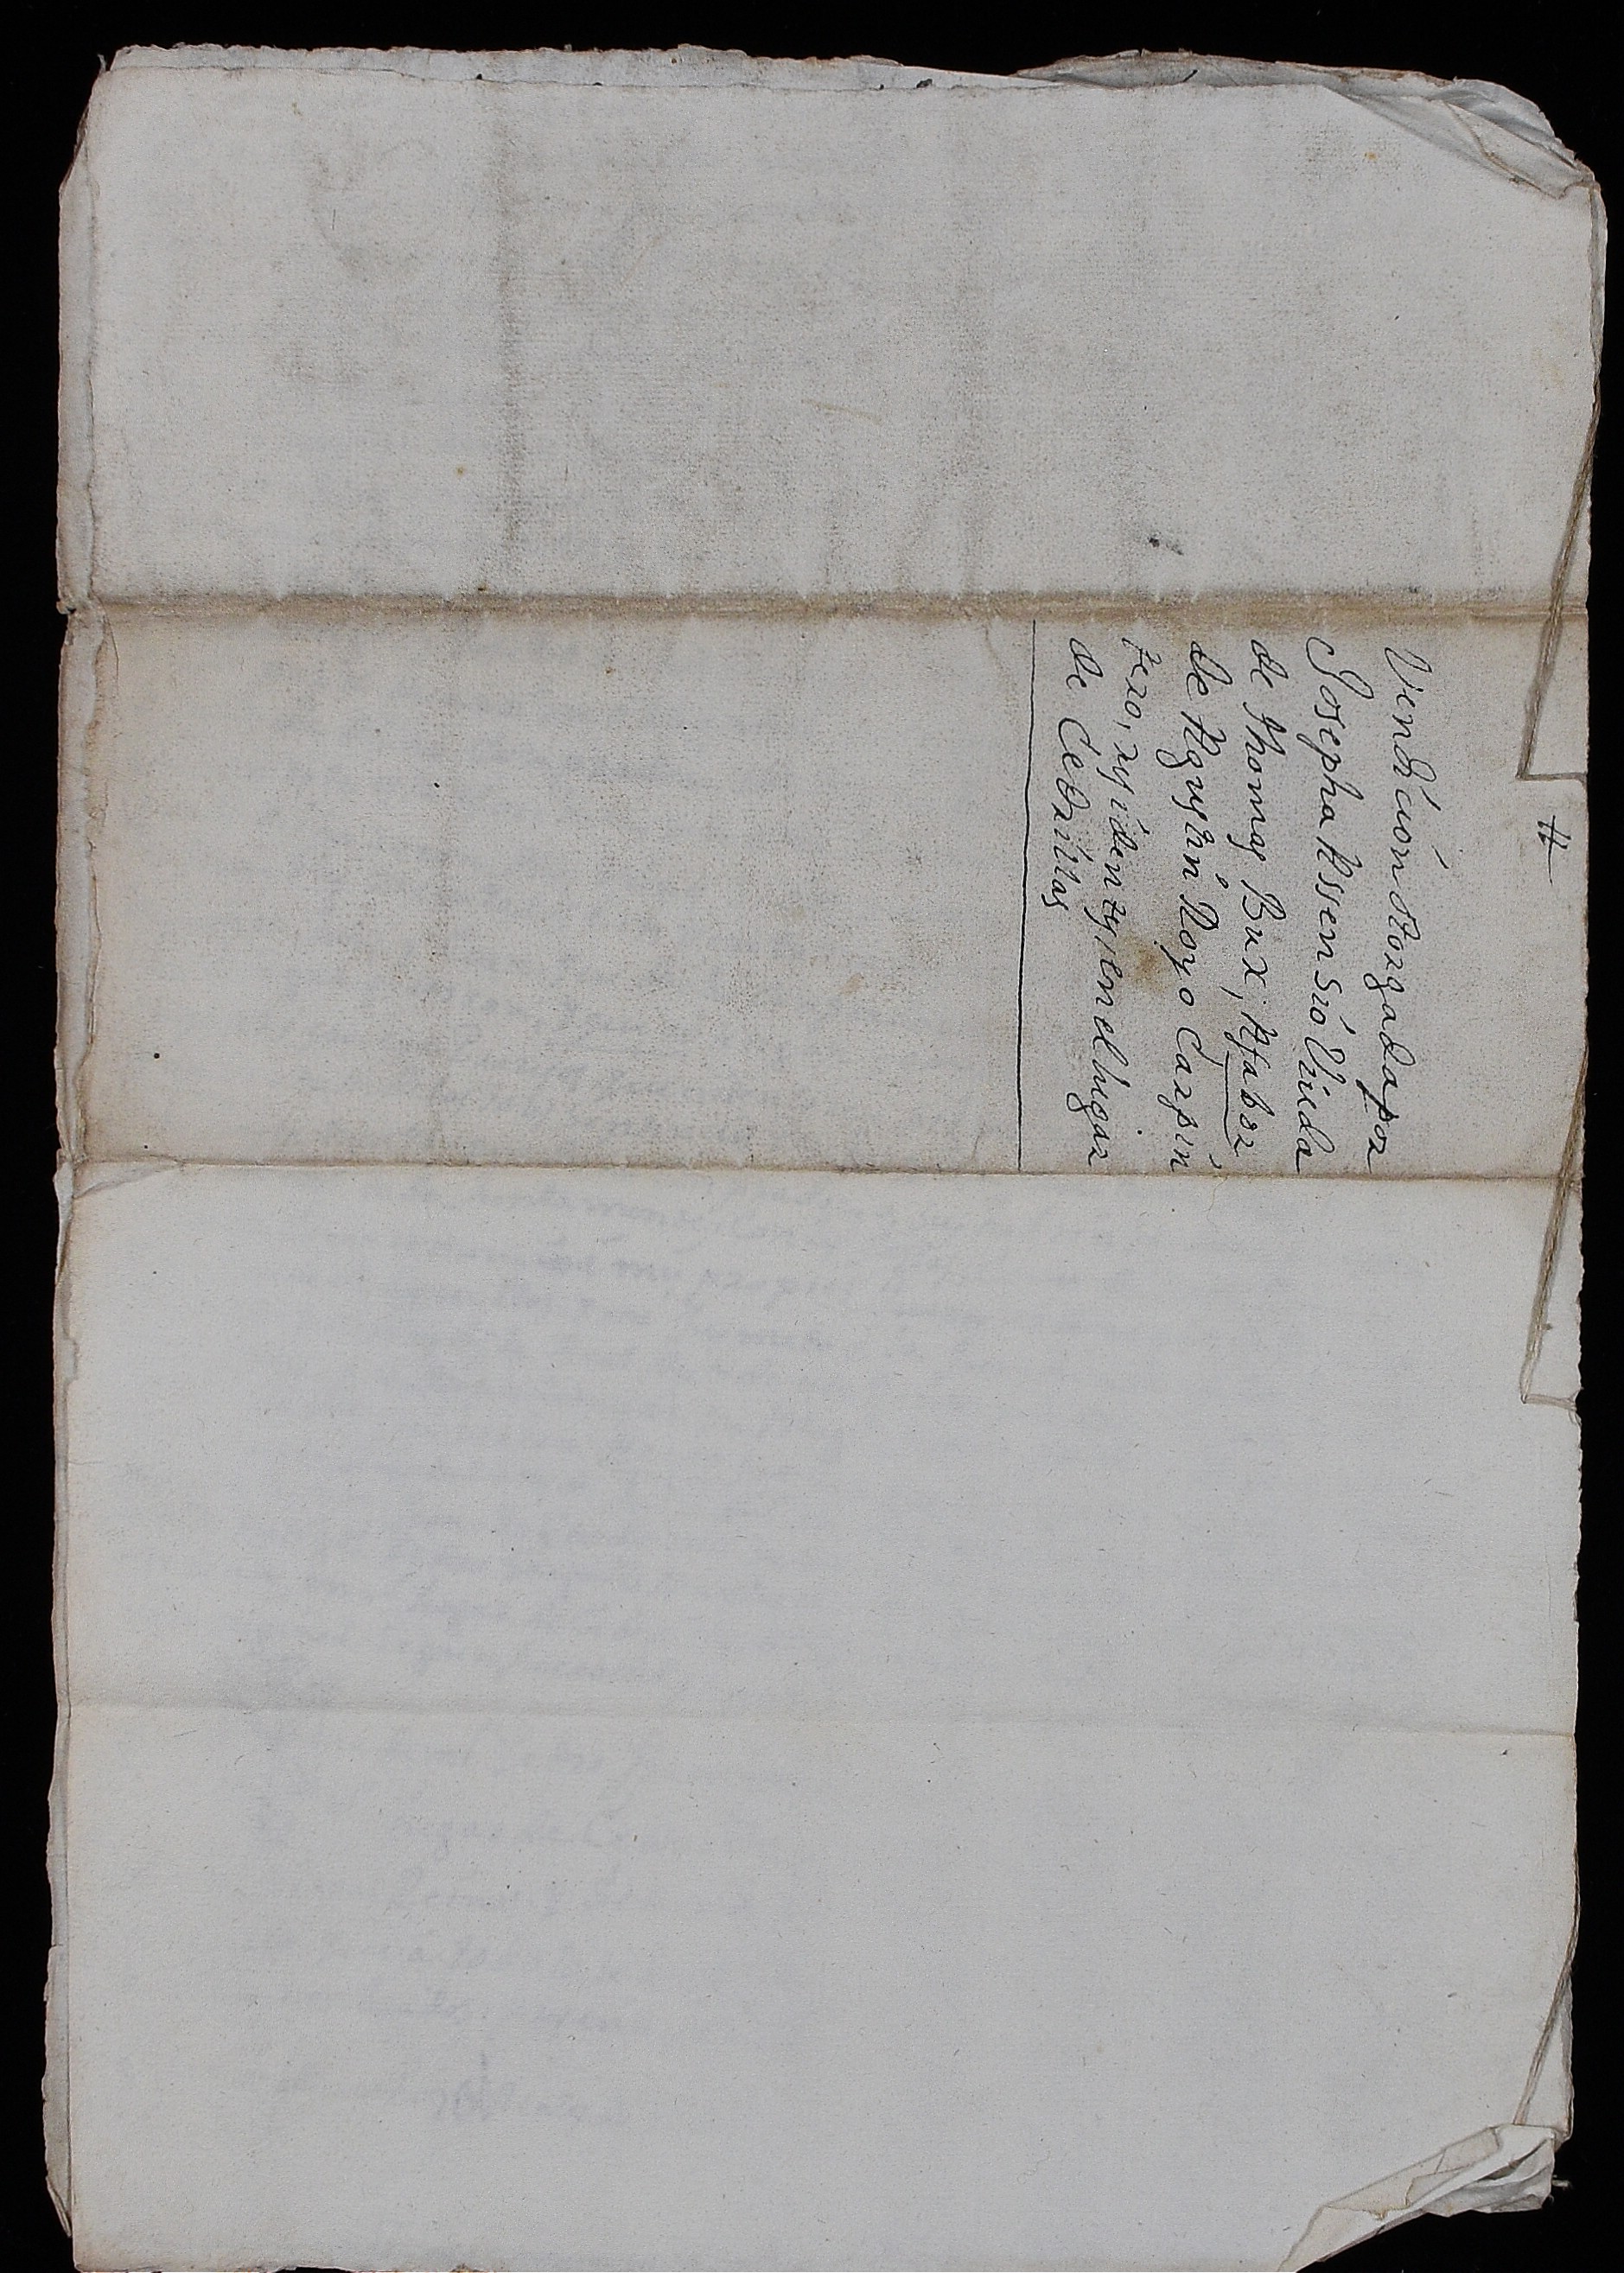 #
Vendición otorgada por
Josepha Assensió Viuda
de Thomas Bux, Afabor
de Agustín Royo Carpin
tero, residentes en el lugar
de Cedrillas